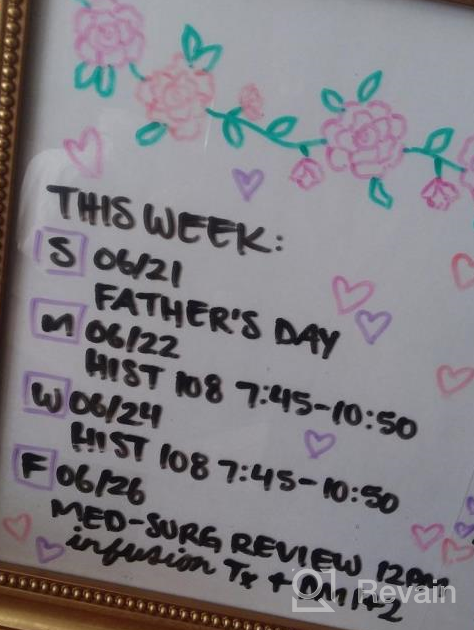 THIS WEEK:
S 06/21
FATHER'S DAY
M 06/22
HIST 108 7:45-10:50
W 06/24
HIST 108 7:45-10:50
F 06/26
MED-SURG REVIEW 12PM
infusion Tx +
Revain